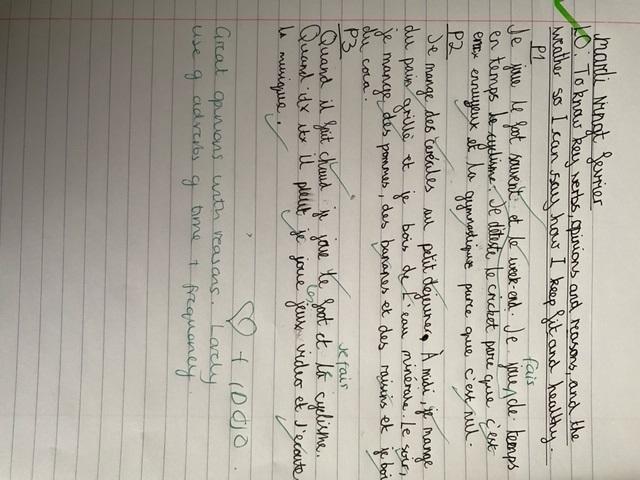 mardi vingt février
LO: To know key verbs, opinions and reasons, and the
weather so I can say how I keep fit and healthy.
P1
fais
Je joue le foot souvent et le week-end. Je joue de temps
en temps le cyclisme. Je déteste le cricket parce que c'est
ennuyeux et la gymnastique parce que c'est nul.
P2
Je mange des céréales au petit déjeuner. À midi, je mange
du pain grillé et je bois de l'eau minérale. Le soir,
je mange des pommes, des bananes et des raisins et je boi
du coca.
P3
je fais
Quand il fait chaud je joue le foot et le cyclisme.
Quand il pleut je joue jeux video et j'écoute
la musique.
♡ +
Great opinions with reasons. Lovely
use of adverbs of time + frequency.